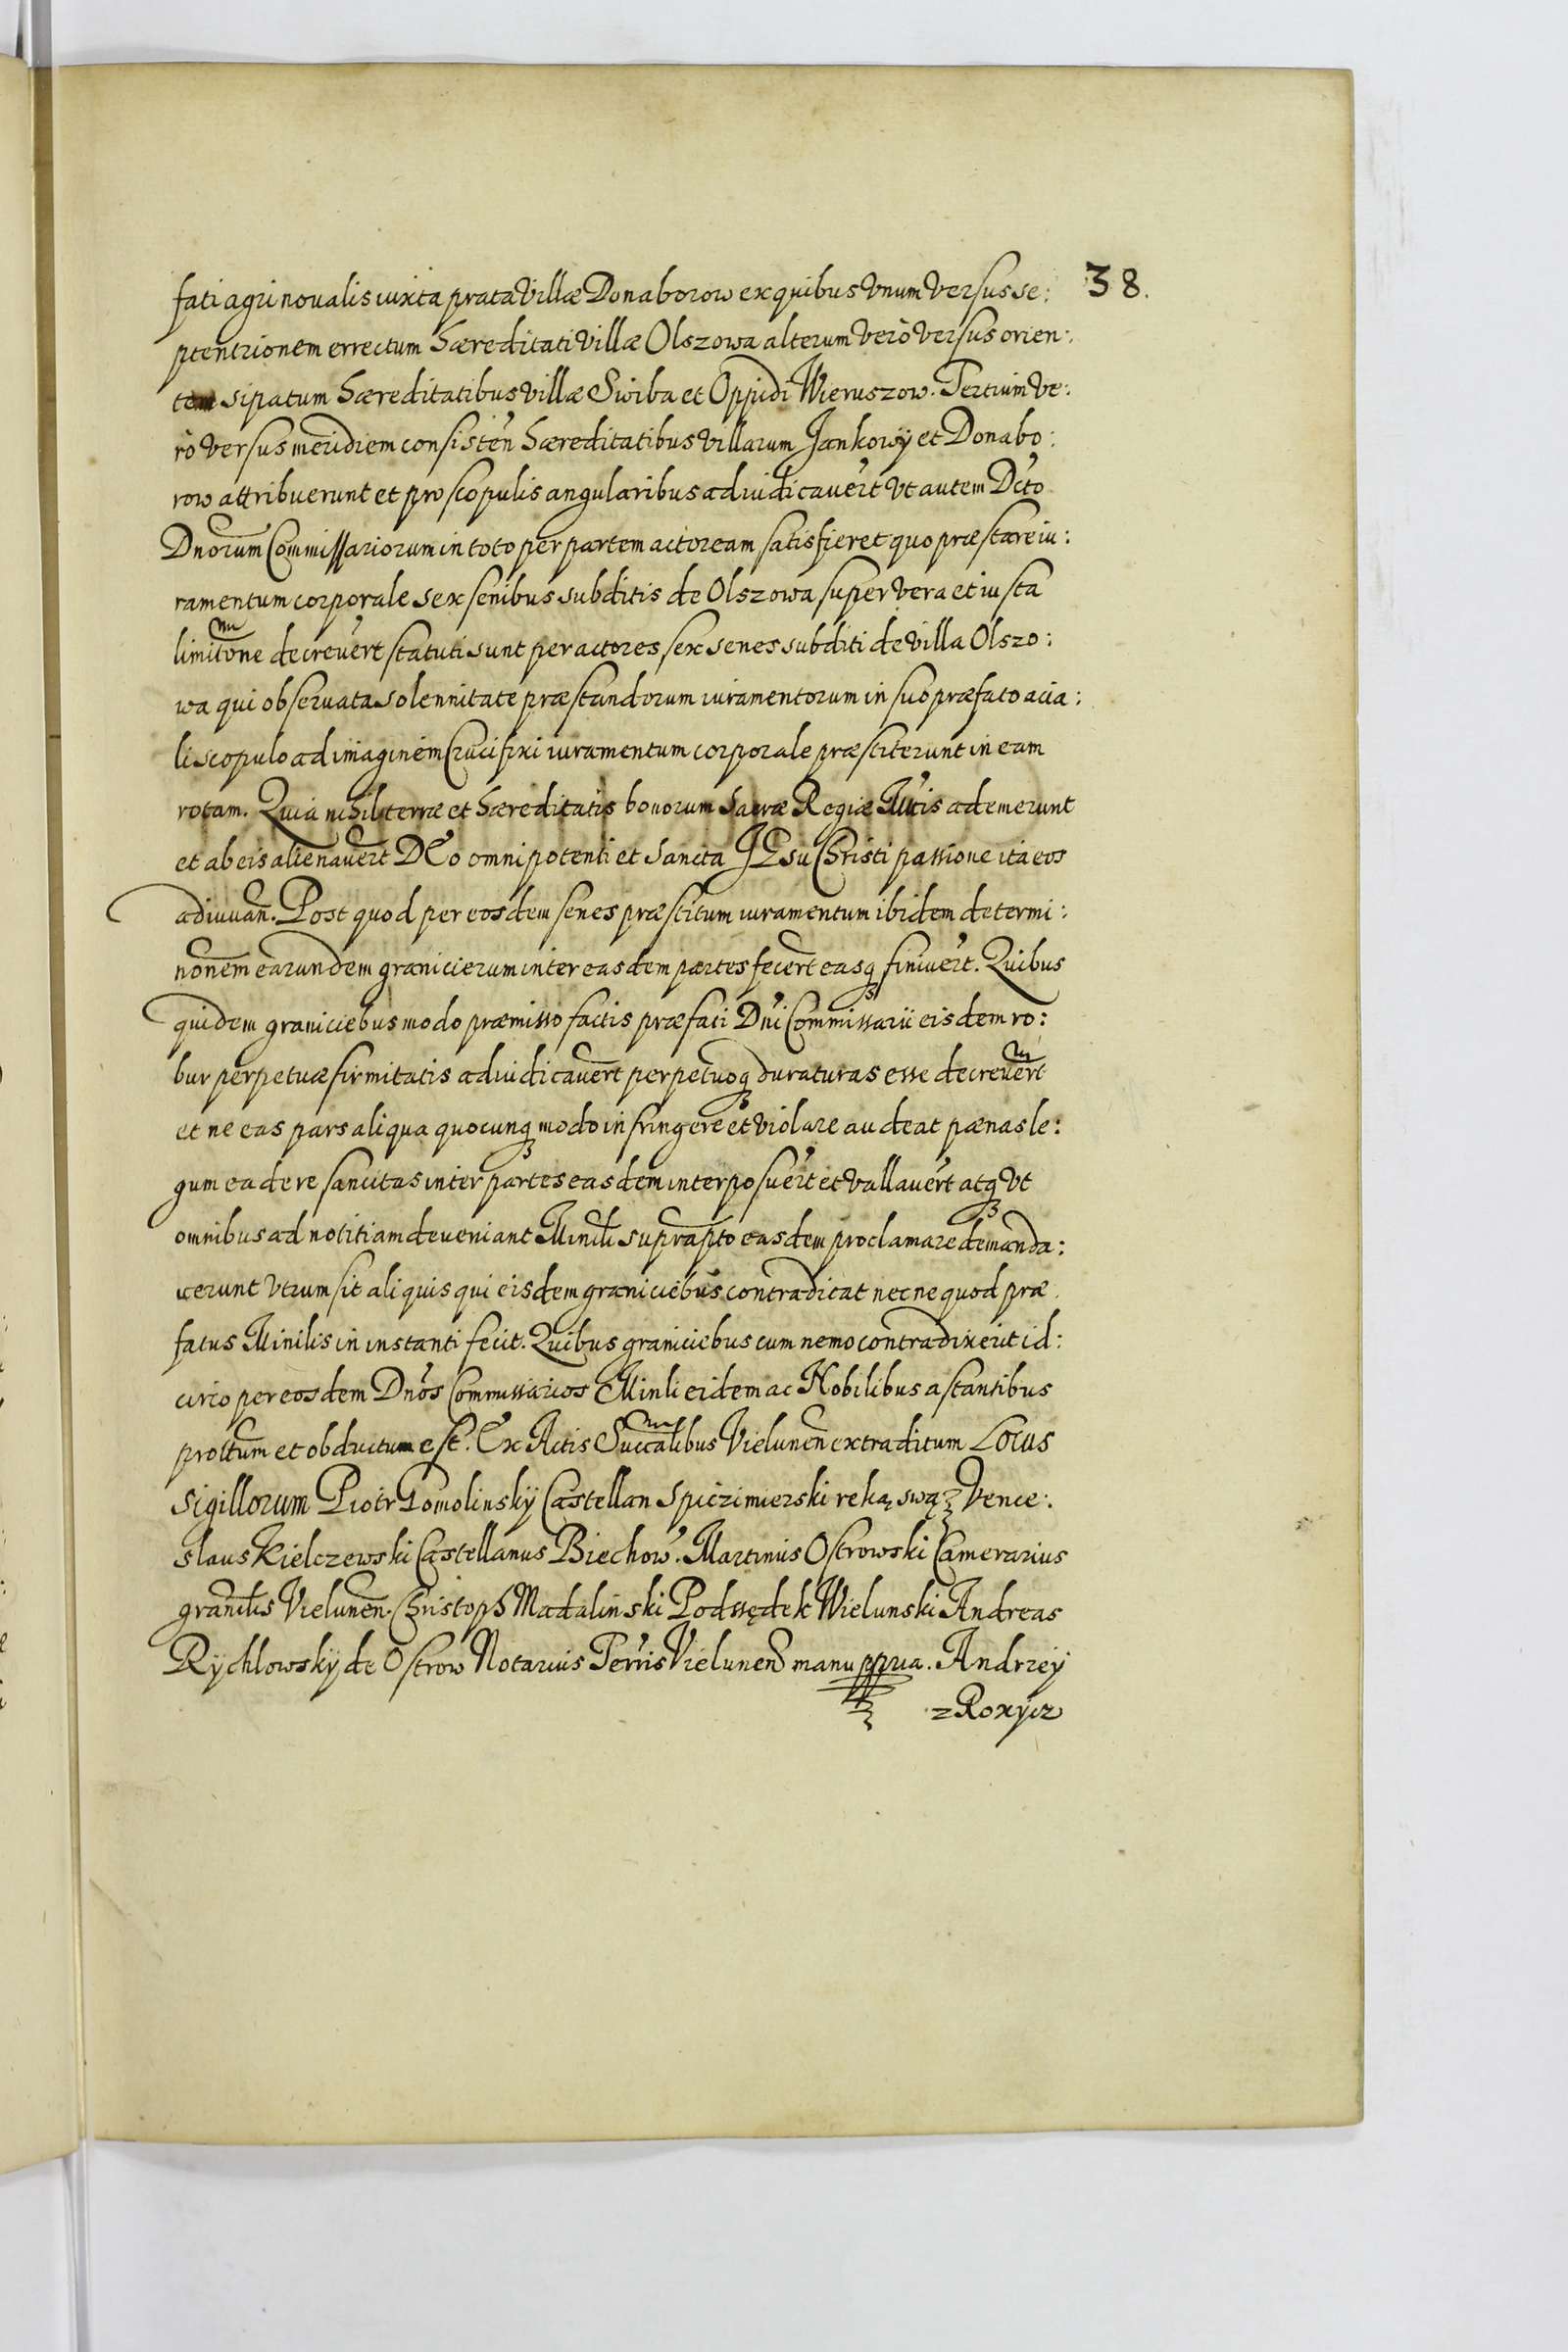 38.
fati agri novalis iuxta prata Villæ Donaborow ex quibus Vnum Versus se:
ptentrionem errectum hæreditati Villæ Olszowa alterum verò Versus orien:
tem sipatum hæreditatibus villæ Swiba et Oppidi Wieruszow. Tertium Ve:
rò Versus meridiem consisten̄ hæreditatibus villarum Jankowÿ et Donabo:
row attribuerunt et pro scopulis angularibus adiudicaver̄t Vt autem Dcto
Dnorum Commissariorum in toto per partem actoream satisfieret quo præstare iu:
ramentum corporale sex senibus subditis de Olszowa super vera et iusta
limitõne decrever̄t statuti sunt per actores sex senes subditi de villa Olszo:
wa qui observata solennitate præstandorum iuramentorum in suo præfato acia:
li scopulo ad imaginem Crucifixi iuramentum corporale præstiterunt in eam
rotam. Quia nihil terræ et hæreditatis bonorum Sacræ Regiæ Mtis ademerunt
et ab eis alienaver̄t DEo omnipotenti et Sancta JEsu Christi passione ita eos
adiuvan̄. Post quod per eosdem senes præstitum iuramentum ibidem determi:
nonem earundem granicierum inter easdem partes fecer̄t easq; finiver̄t. Quibus
quidem graniciebus modo præmisso factis præfati Dni Commissarii eisdem ro:
bur perpetuæ firmitatis adiudicaver̄t perpetuoq; duraturas esse decrever̄t
et ne eas pars aliqua quocunq; modo infringere et violare audeat pænas le:
gum ea de re sancitas inter partes easdem interposuer̄t et vallaver̄t atq; Vt
omnibus ad notitiam deveniant Minili suprapto easdem proclamare demanda:
verunt Vtrum sit aliquis qui eisdem graniciebus contradicat nec ne quod præ
fatus Minilis in instanti fecit. Quibus graniciebus cum nemo contradixerit id:
circo per eosdem Dnos Commissarios Minli eidem ac Nobilibus astantibus
proltum et obductum est. Ex Actis Succalibus Vielunen̄ extraditum Locus
Sigillorum Piotr Gomolinskÿ Castellan Spiczimierski reką swą Vence:
slaus Kielczewski Castellanus Biechow. Martinus Ostrowski Camerarius
granilis Vielunen̄. Christoph Madalinski Podsędek Wielunski Andreas
Rÿchlowskÿ de Ostrow Notarius Terris Vielunen̄ manu ppria. Andrzeÿ
z Roxÿcz